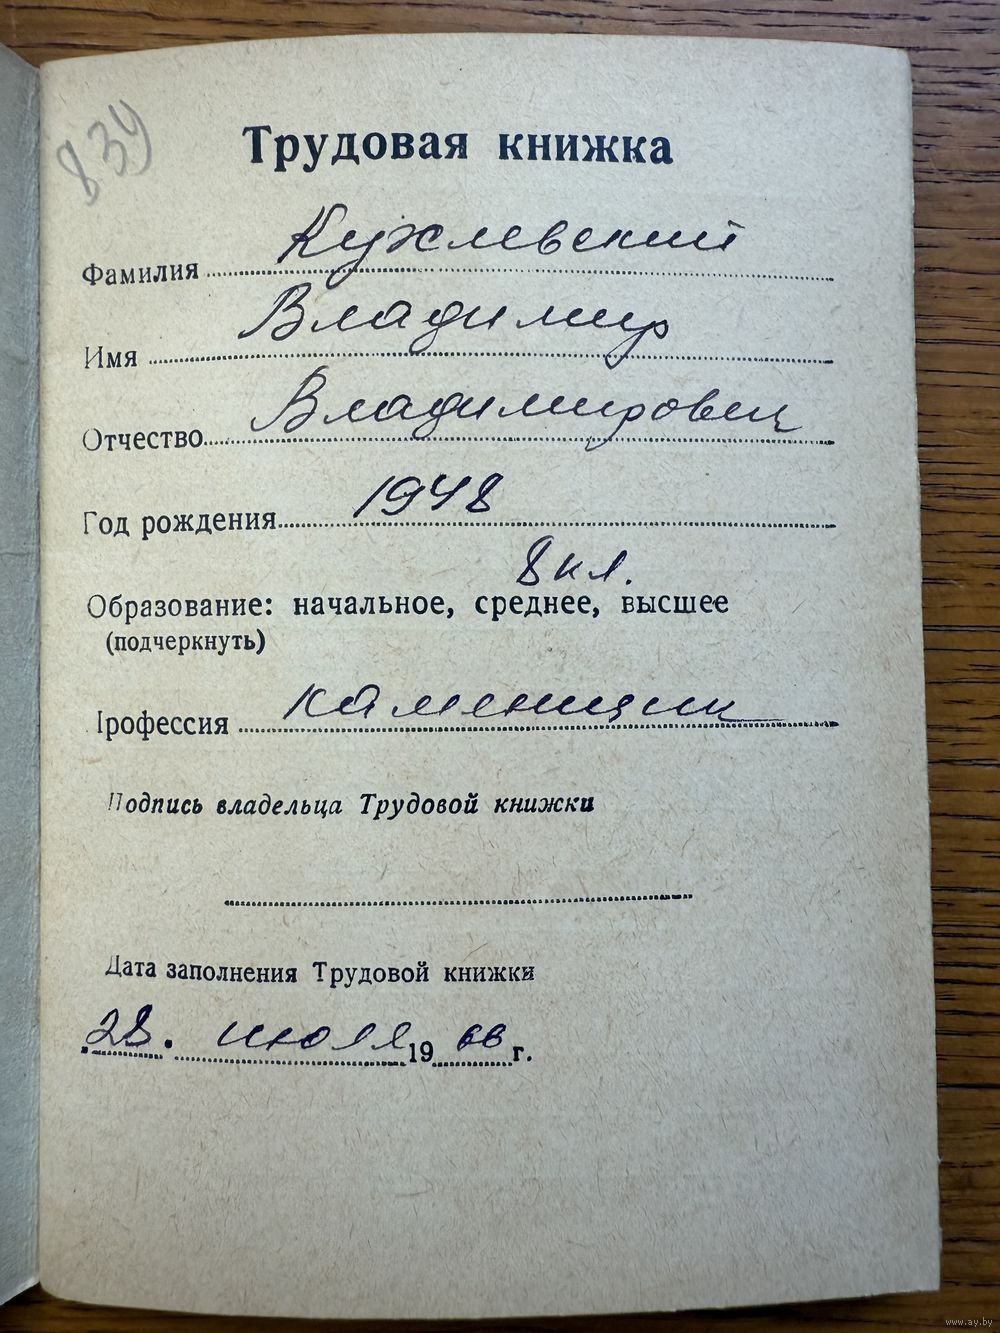 839
Трудовая книжка
Фамилия Кухлевский
Имя Владимир
Отчество Владимирович
Год рождения 1948
8 кл.
Образование: начальное, среднее, высшее
(подчеркнуть)
Профессия каменщик
Подпись владельца Трудовой книжки
Дата заполнения Трудовой книжки
28. июля 1966 г.
www.ay.by